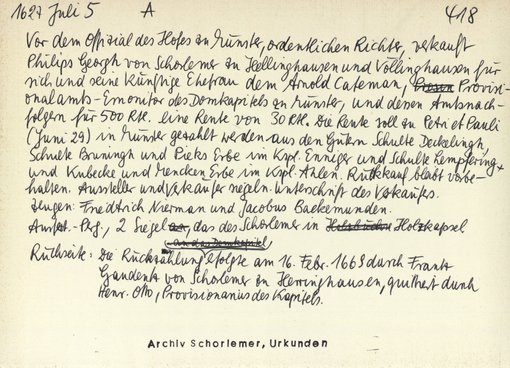 1627 Juli 5 A 418
Vor dem Offizial des Hofes zu Münster, ordentlichen Richter, verkauft
Philips Georgh von Schorlemer zu Hellinghausen und Völlinghausen für
sich und seine künftige Ehefrau dem Arnold Cateman, Provisi-
onalamts-Emonitor des Domkapitels zu Münster, und denen Amtsnach-
folgern für 500 Rtl. eine Rente von 30 Rtl. Die Rente soll zu Petri et Pauli
(Juni 29) in Münster gezahlt werden aus den Gütern Schulte Deckelingh,
Schulte Bruningh und Pieks Erbe im Kspl. Enniger und Schulte Kempfering
und Kubecke und Mencken Erbe im Kspl. Ahlen. Rückkauf bleibt vorbe-
halten. Aussteller und Verkäufer siegeln. Unterschrift des Verkäufers.
Zeugen: Friedrich Nierman und Jacobus Backemunden.
Ausf. - Prg., 2 Siegel, das des Schorlemer in Holzkapsel
Rückseite: Die Rückzahlung erfolgte am 16. Febr. 1669 durch Frantz
Gaudenz von Schorlemer zu Herringhausen, quittiert durch
Henr. Otto, Provisionarius des Kapitels.
Archiv Schorlemer, Urkunden